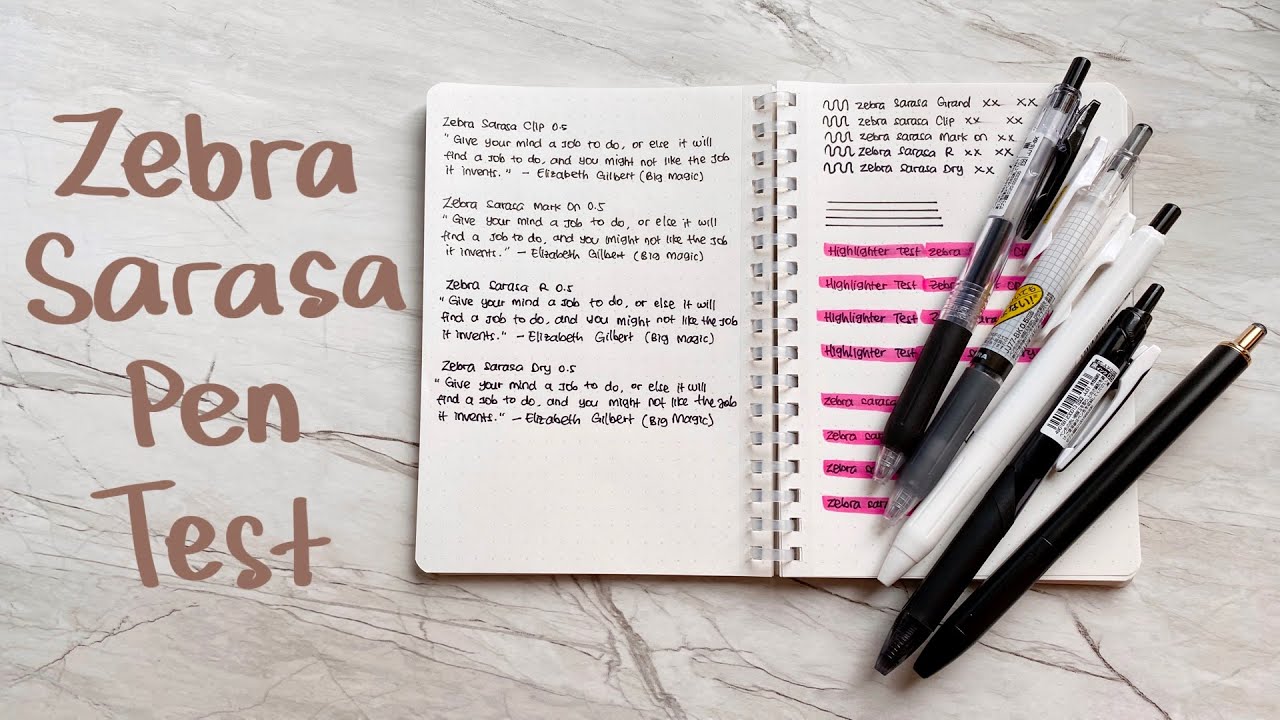 Zebra
Sarasa
Pen
Test
Zebra Sarasa Clip 0.5
" Give your mind a job to do, or else it will
find a job to do, and you might not like the job
it invents." - Elizabeth Gilbert (Big Magic)
Zebra Sarasa Mark On 0.5
" Give your mind a job to do, or else it will
find a job to do, and you might not like the job
it invents." - Elizabeth Gilbert (Big Magic)
Zebra Sarasa R 0.5
" Give your mind a job to do, or else it will
find a job to do, and you might not like the job
it invents." - Elizabeth Gilbert (Big Magic)
Zebra Sarasa Dry 0.5
" Give your mind a job to do, or else it will
find a job to do, and you might not like the job
it invents." - Elizabeth Gilbert (Big Magic)
zebra sarasa Grand xx xx
zebra sarasa Clip xx xx
zebra sarasa Mark on xx
zebra sarasa R xx xx
zebra sarasa Dry xx
Highlighter Test zebra
Highlighter Test
Highlighter Test
Highlighter Test
zebra sarasa
zebra
zebra
zebra